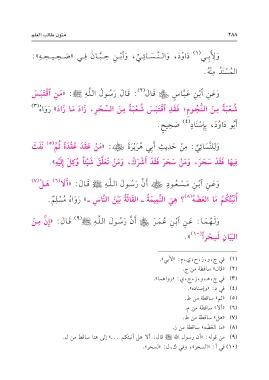 ٢٨٨ متون طالب العلم
وَلِأَبِي(١) دَاوُدَ، وَالنَّسَائِيِّ، وَابْنِ حِبَّانَ فِي «صَحِيحِهِ»:
المُسْنَدُ مِنْهُ.
وَعَنِ ابْنِ عَبَّاسٍ ﷺ قَالَ(٢): قَالَ رَسُولُ اللَّهِ ﷺ: «مَنِ اقْتَبَسَ
شُعْبَةً مِنَ النُّجُومِ؛ فَقَدِ اقْتَبَسَ شُعْبَةً مِنَ السِّحْرِ، زَادَ مَا زَادَ» رَوَاهُ(٣)
أَبُو دَاوُدَ، بِإِسْنَادٍ(٤) صَحِيحٍ.
وَلِلنَّسَائِيِّ: مِنْ حَدِيثِ أَبِي هُرَيْرَةَ: «مَنْ عَقَدَ عُقْدَةً ثُمَّ(٥) نَفَثَ
فِيهَا فَقَدْ سَحَرَ، وَمَنْ سَحَرَ فَقَدْ أَشْرَكَ، وَمَنْ تَعَلَّقَ شَيْئاً وُكِلَ إِلَيْهِ».
وَعَنِ ابْنِ مَسْعُودٍ أَنَّ رَسُولَ اللَّهِ ﷺ قَالَ: «أَلَا(٦) هَلْ(٧)
أُنَبِّئُكُمْ مَا العَضْهُ(٨)؟ هِيَ النَّمِيمَةُ ـ القَالَةُ بَيْنَ النَّاسِ ـ» رَوَاهُ مُسْلِمٌ.
وَلَهُمَا: عَنِ ابْنِ عُمَرَ أَنَّ رَسُولَ اللَّهِ ﷺ(٩) قَالَ: «إِنَّ مِنَ
البَيَانِ لَسِحْراً(١٠)».
(٢) «قال» ساقطة من ج.
(٤) في د: «وإسناده».
(٥) «ثم» ساقطة من ط.
(٦) «ألا» ساقطة من م.
(٧) «هل» ساقطة من ط.
(٨) «ما العضه» ساقطة من ز.
(٩) من قوله: «أن رسول الله ﷺ قال: ألا هل أنبئكم ...» إلى هنا ساقط من ل.